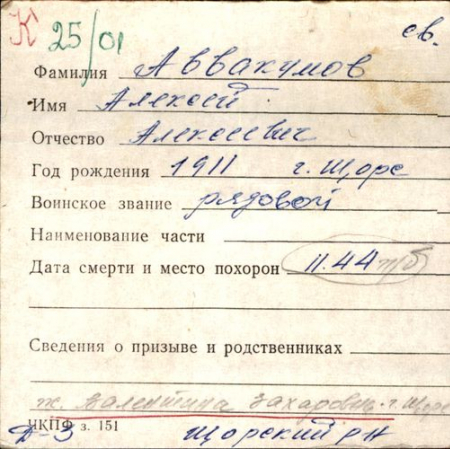 К 25/01 св.
Фамилия Аввакумов
Имя Алексей
Отчество Алексеевич
Год рождения 1911 г. Щорс
Воинское звание рядовой
Наименование части
Дата смерти и место похорон 11.44 п/б
Сведения о призыве и родственниках
ж. Валентина Захаровна г. Щорс
ЧКПФ з. 151
Д-3 Щорский рн